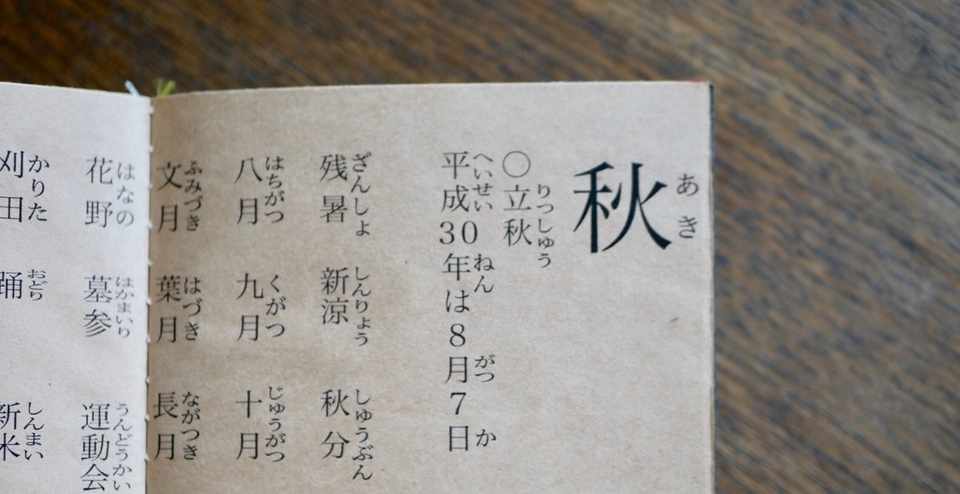 秋
あき
○立秋
りっしゅう
平成30年は8月7日
へいせい ねん がつ か
残暑 新涼 秋分
ざんしょ しんりょう しゅうぶん
八月 九月 十月
はちがつ くがつ じゅうがつ
文月 葉月 長月
ふみづき はづき ながつき
花野 墓参 運動会
はなの はかまいり うんどうかい
刈田 踊 新米
かりた おどり しんまい